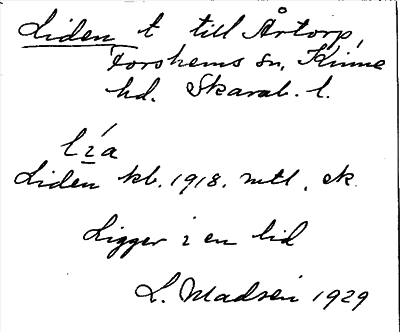 Liden t till Årtorp,
Forshems sn, Kinne
hd. Skarab. l.
lía
Liden kb. 1918. mtl. ek.
Ligger i en lid
L. Madsén 1929